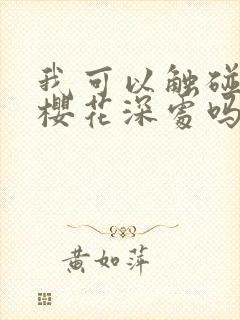 我可以触碰
樱花深处吗
黄如萍